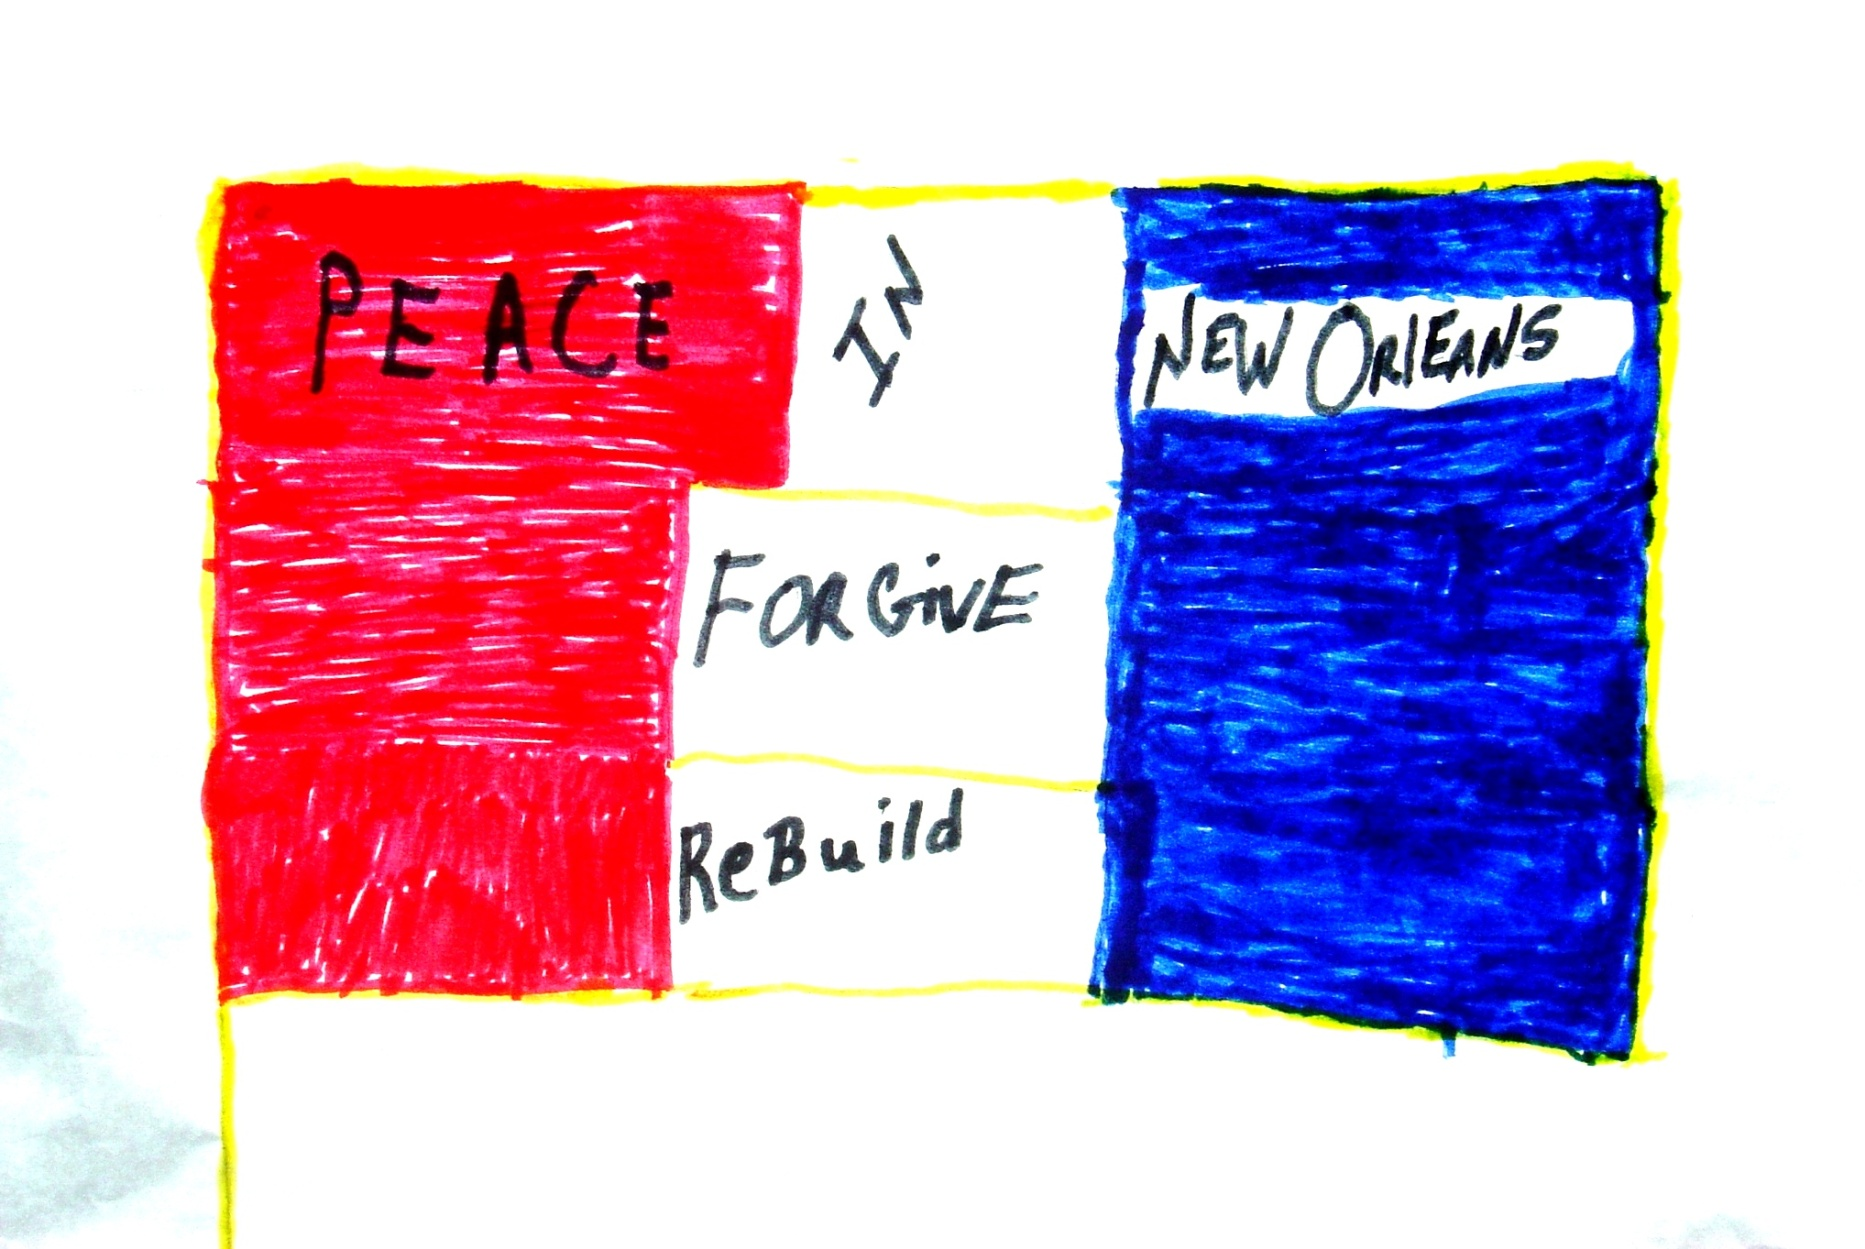 PEACE IN NEW ORlEANS
FORGiVE
ReBuild